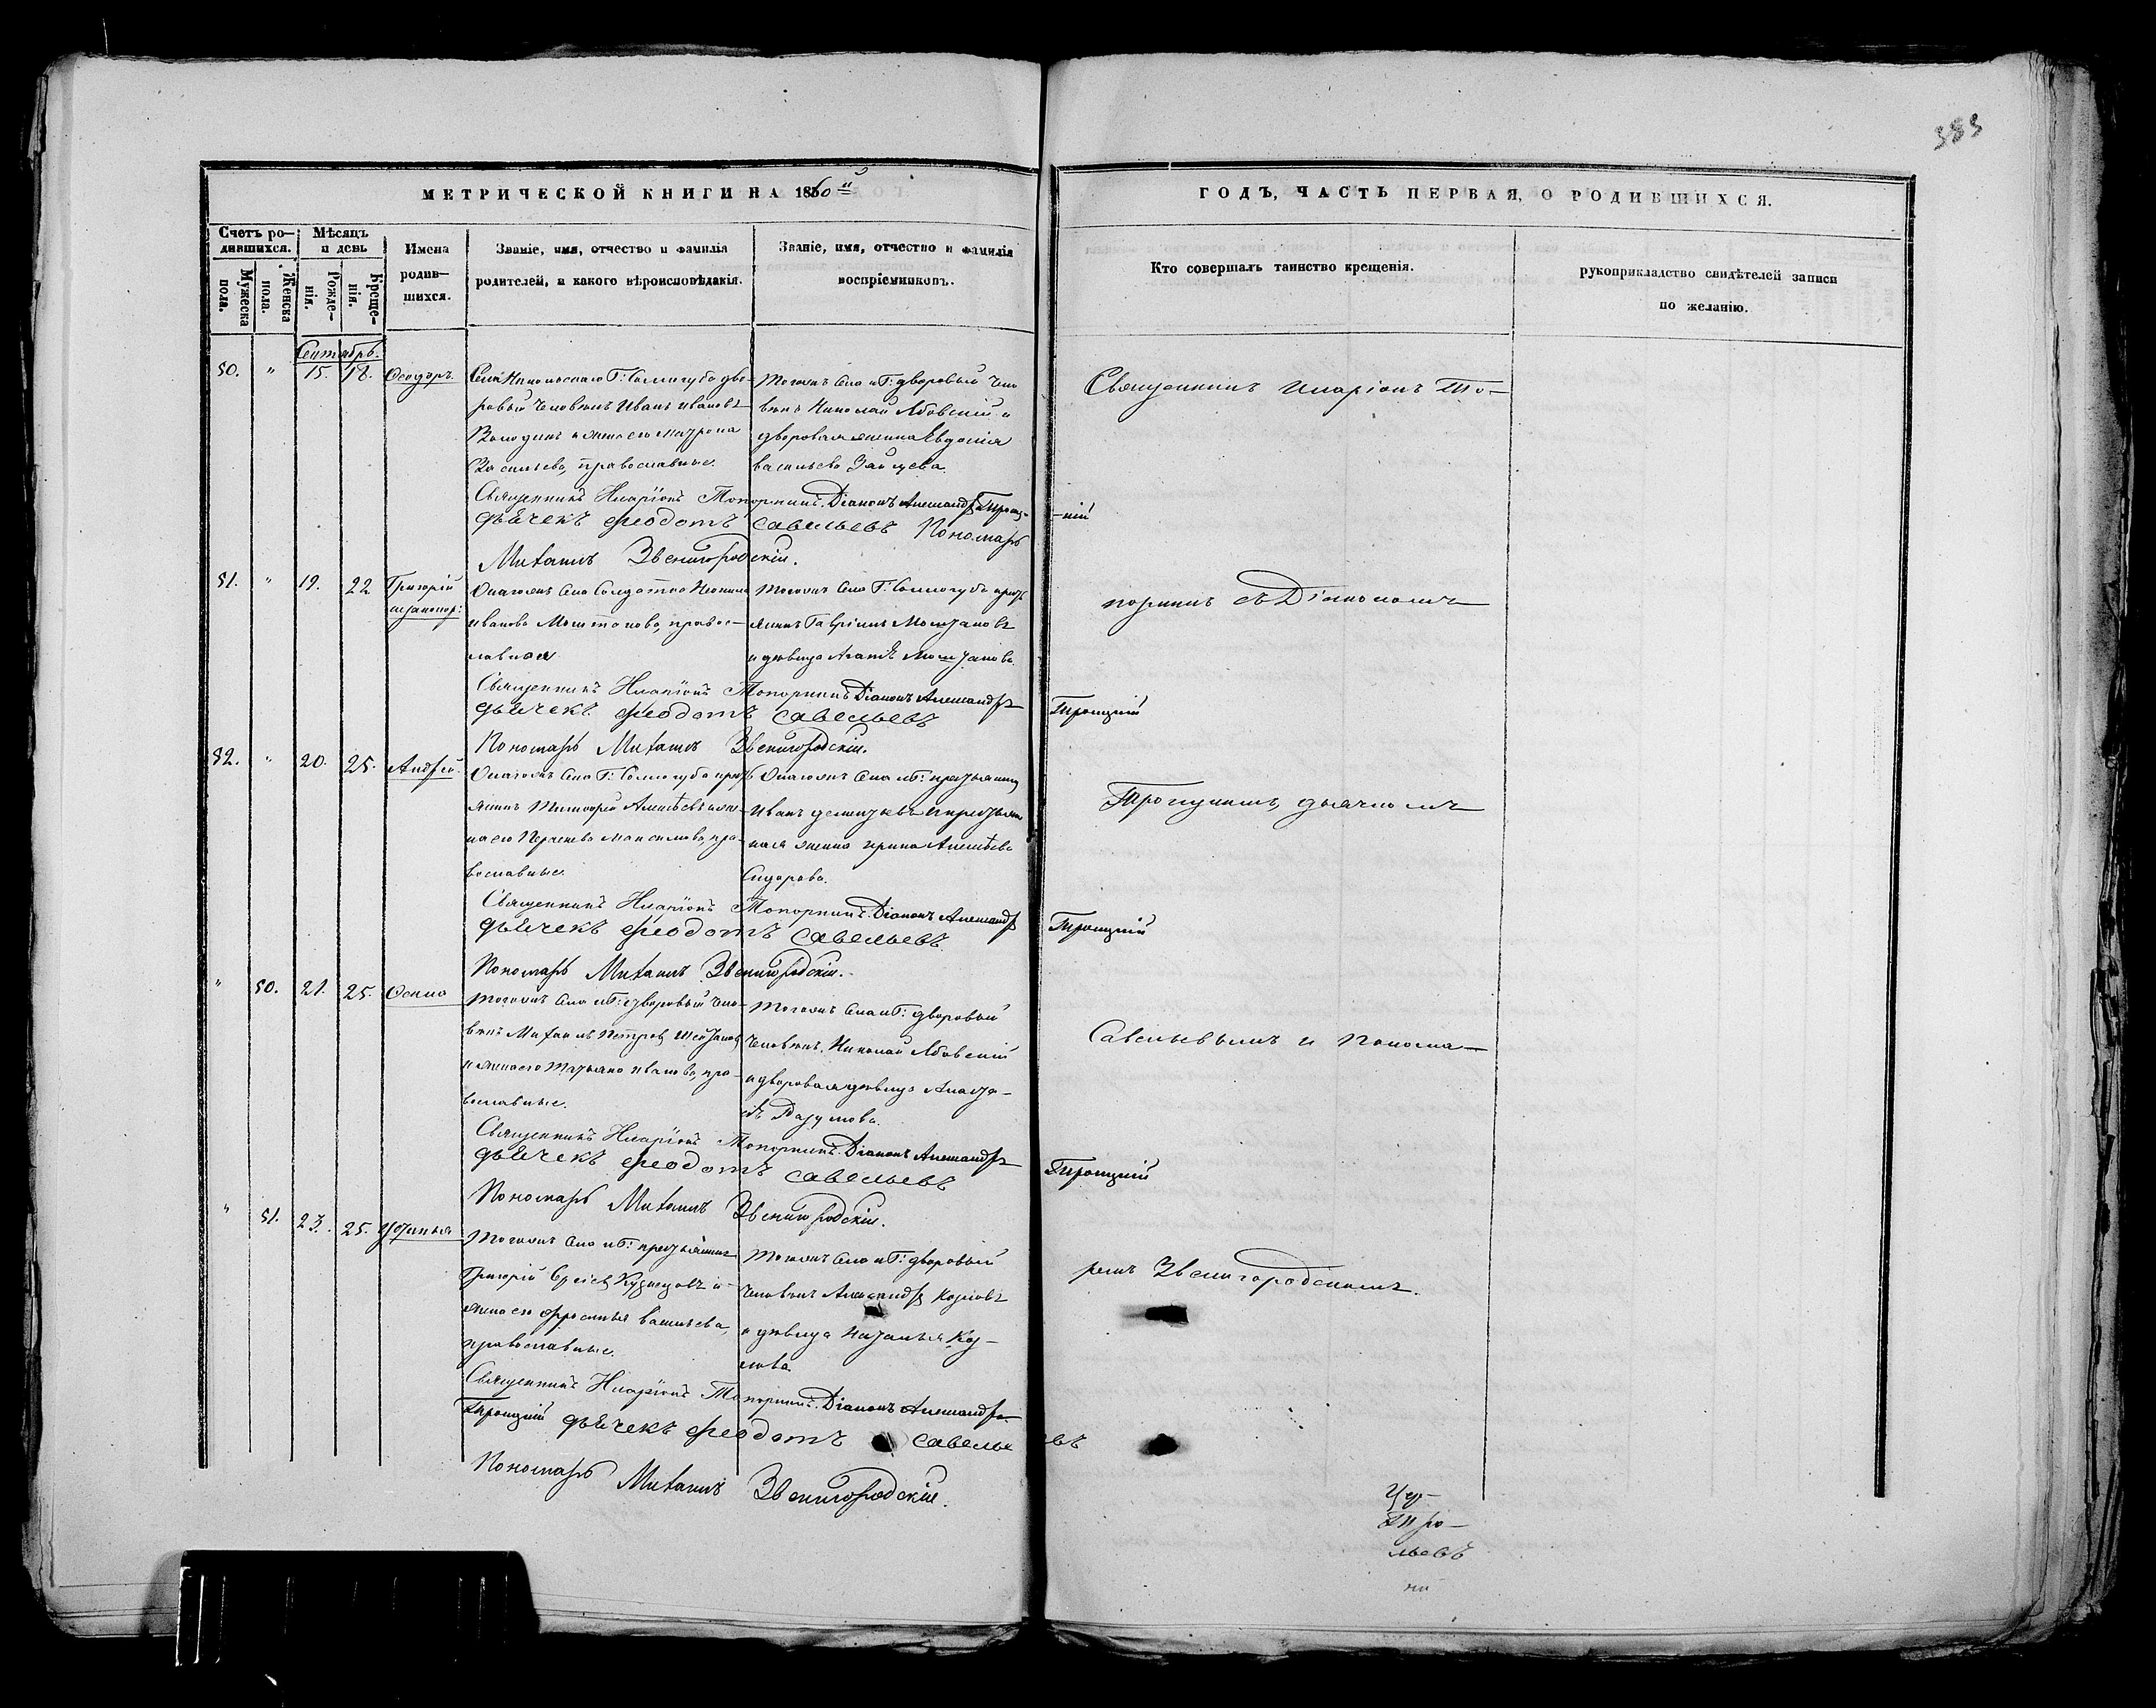 383
МЕТРИЧЕСКОЙ КНИГИ НА 1860й
ГОДЪ, ЧАСТЬ ПЕРВАЯ, О РОДИВШИХСЯ.
Счетъ ро-
дившихся.
Мужеска
пола.
Женска
пола.
Мѣсяцъ
и день
Рожде-
нія.
Креще-
нія.
Имена
родив-
шихся.
Званіе, имя, отчество и фамилія
родителей, и какого вѣроисповѣданія.
Званіе, имя, отчество и фамилія
воспріемниковъ.
Кто совершалъ таинство крещенія.
рукоприкладство свидѣтелей записи
по желанію.
Сентябрь.
50. " 15. 18. Ѳеодоръ
Села Никольскаго Г: Соллогуба дво-
ровый человѣкъ Иванъ Ивановъ
Володинъ и жена его Матрона
Васильева, православные.
Тогожъ Села и Г: дворовый чело
вѣкъ Николай Лбовскій и
дворовая женка Евдокія
Васильева Зайцева.
Священникъ Иларіонъ Топорнинъ. Діаконъ Александръ Троиц-
-кій
дьячекъ Ѳеодотъ Савельевъ Пономарь
Михаилъ Звенигородскій.
51. " 19. 22 Григорій
незаконор:
Онагожъ Села Солдатка
Иванова, правос-
лавная
Тогожъ Села Г: Соллогуба крест
янинъ Гавріилъ
и дѣвица Агаѳія
Священникъ Иларіонъ Топорнинъ Діаконъ Александръ
Троицкій
дьячекъ Ѳеодотъ Савельевъ
Пономарь Михаилъ Звенигородскій.
52. " 20. 25. Андрей.
Онагожъ Села Г: Соллогуба крест
янинъ Тимоѳей Алексѣевъ и же-
на его Максимова, пра-
вославные
Онагожъ Села и Г: крестьянинъ
Иванъ и крестьян
ская женка Ирина Алексѣева
Сидорова.
Священникъ Иларіонъ Топорнинъ. Діаконъ Александръ
Троицкій
дьячекъ Ѳеодотъ Савельевъ
Пономарь Михаилъ Звенигородскій.
" 50. 21. 25. Ѳекла
Тогожъ Села и Г: дворовый чело-
вѣкъ Михаилъ Петровъ
и жена его Татьяна Иванова, пра-
вославные.
Тогожъ Села и Г: дворовый
человѣкъ Николай Лбовскій
и дворовая дѣвица Анаста-
сія Разумова.
Священникъ Иларіонъ Топорнинъ. Діаконъ Александръ
Троицкій
дьячекъ Ѳеодотъ Савельевъ
Пономарь Михаилъ Звенигородскій.
" 51. 23. 25. Устинья
Тогожъ Села и Г: крестьянинъ
Григорій Сергіевъ Кузнецовъ и
жена его Васильева,
православные.
Тогожъ Села и Г: дворовый
человѣкъ Александръ Козловъ
и дѣвица Наталья Коз-
лова
Священникъ Иларіонъ Топорнинъ. Діаконъ Александръ
Троицкій дьячекъ Ѳеодотъ Савельевъ
Пономарь Михаилъ Звенигородскій.
Священникъ Иларіонъ То-
порнинъ съ Діакономъ
Троицкимъ, дьячкомъ
Савельевымъ и Понома-
ремъ Звенигородскимъ.
Цер-
Тро-
льевъ